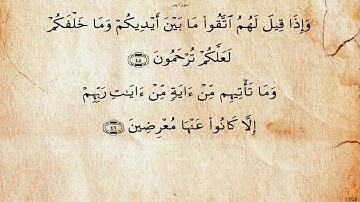 سورة يس
وَإِذَا قِيلَ لَهُمُ ٱتَّقُوا۟ مَا بَيْنَ أَيْدِيكُمْ وَمَا خَلْفَكُمْ
لَعَلَّكُمْ تُرْحَمُونَ ٤٥
وَمَا تَأْتِيهِم مِّنْ ءَايَةٍ مِّنْ ءَايَٰتِ رَبِّهِمْ
إِلَّا كَانُوا۟ عَنْهَا مُعْرِضِينَ ٤٦